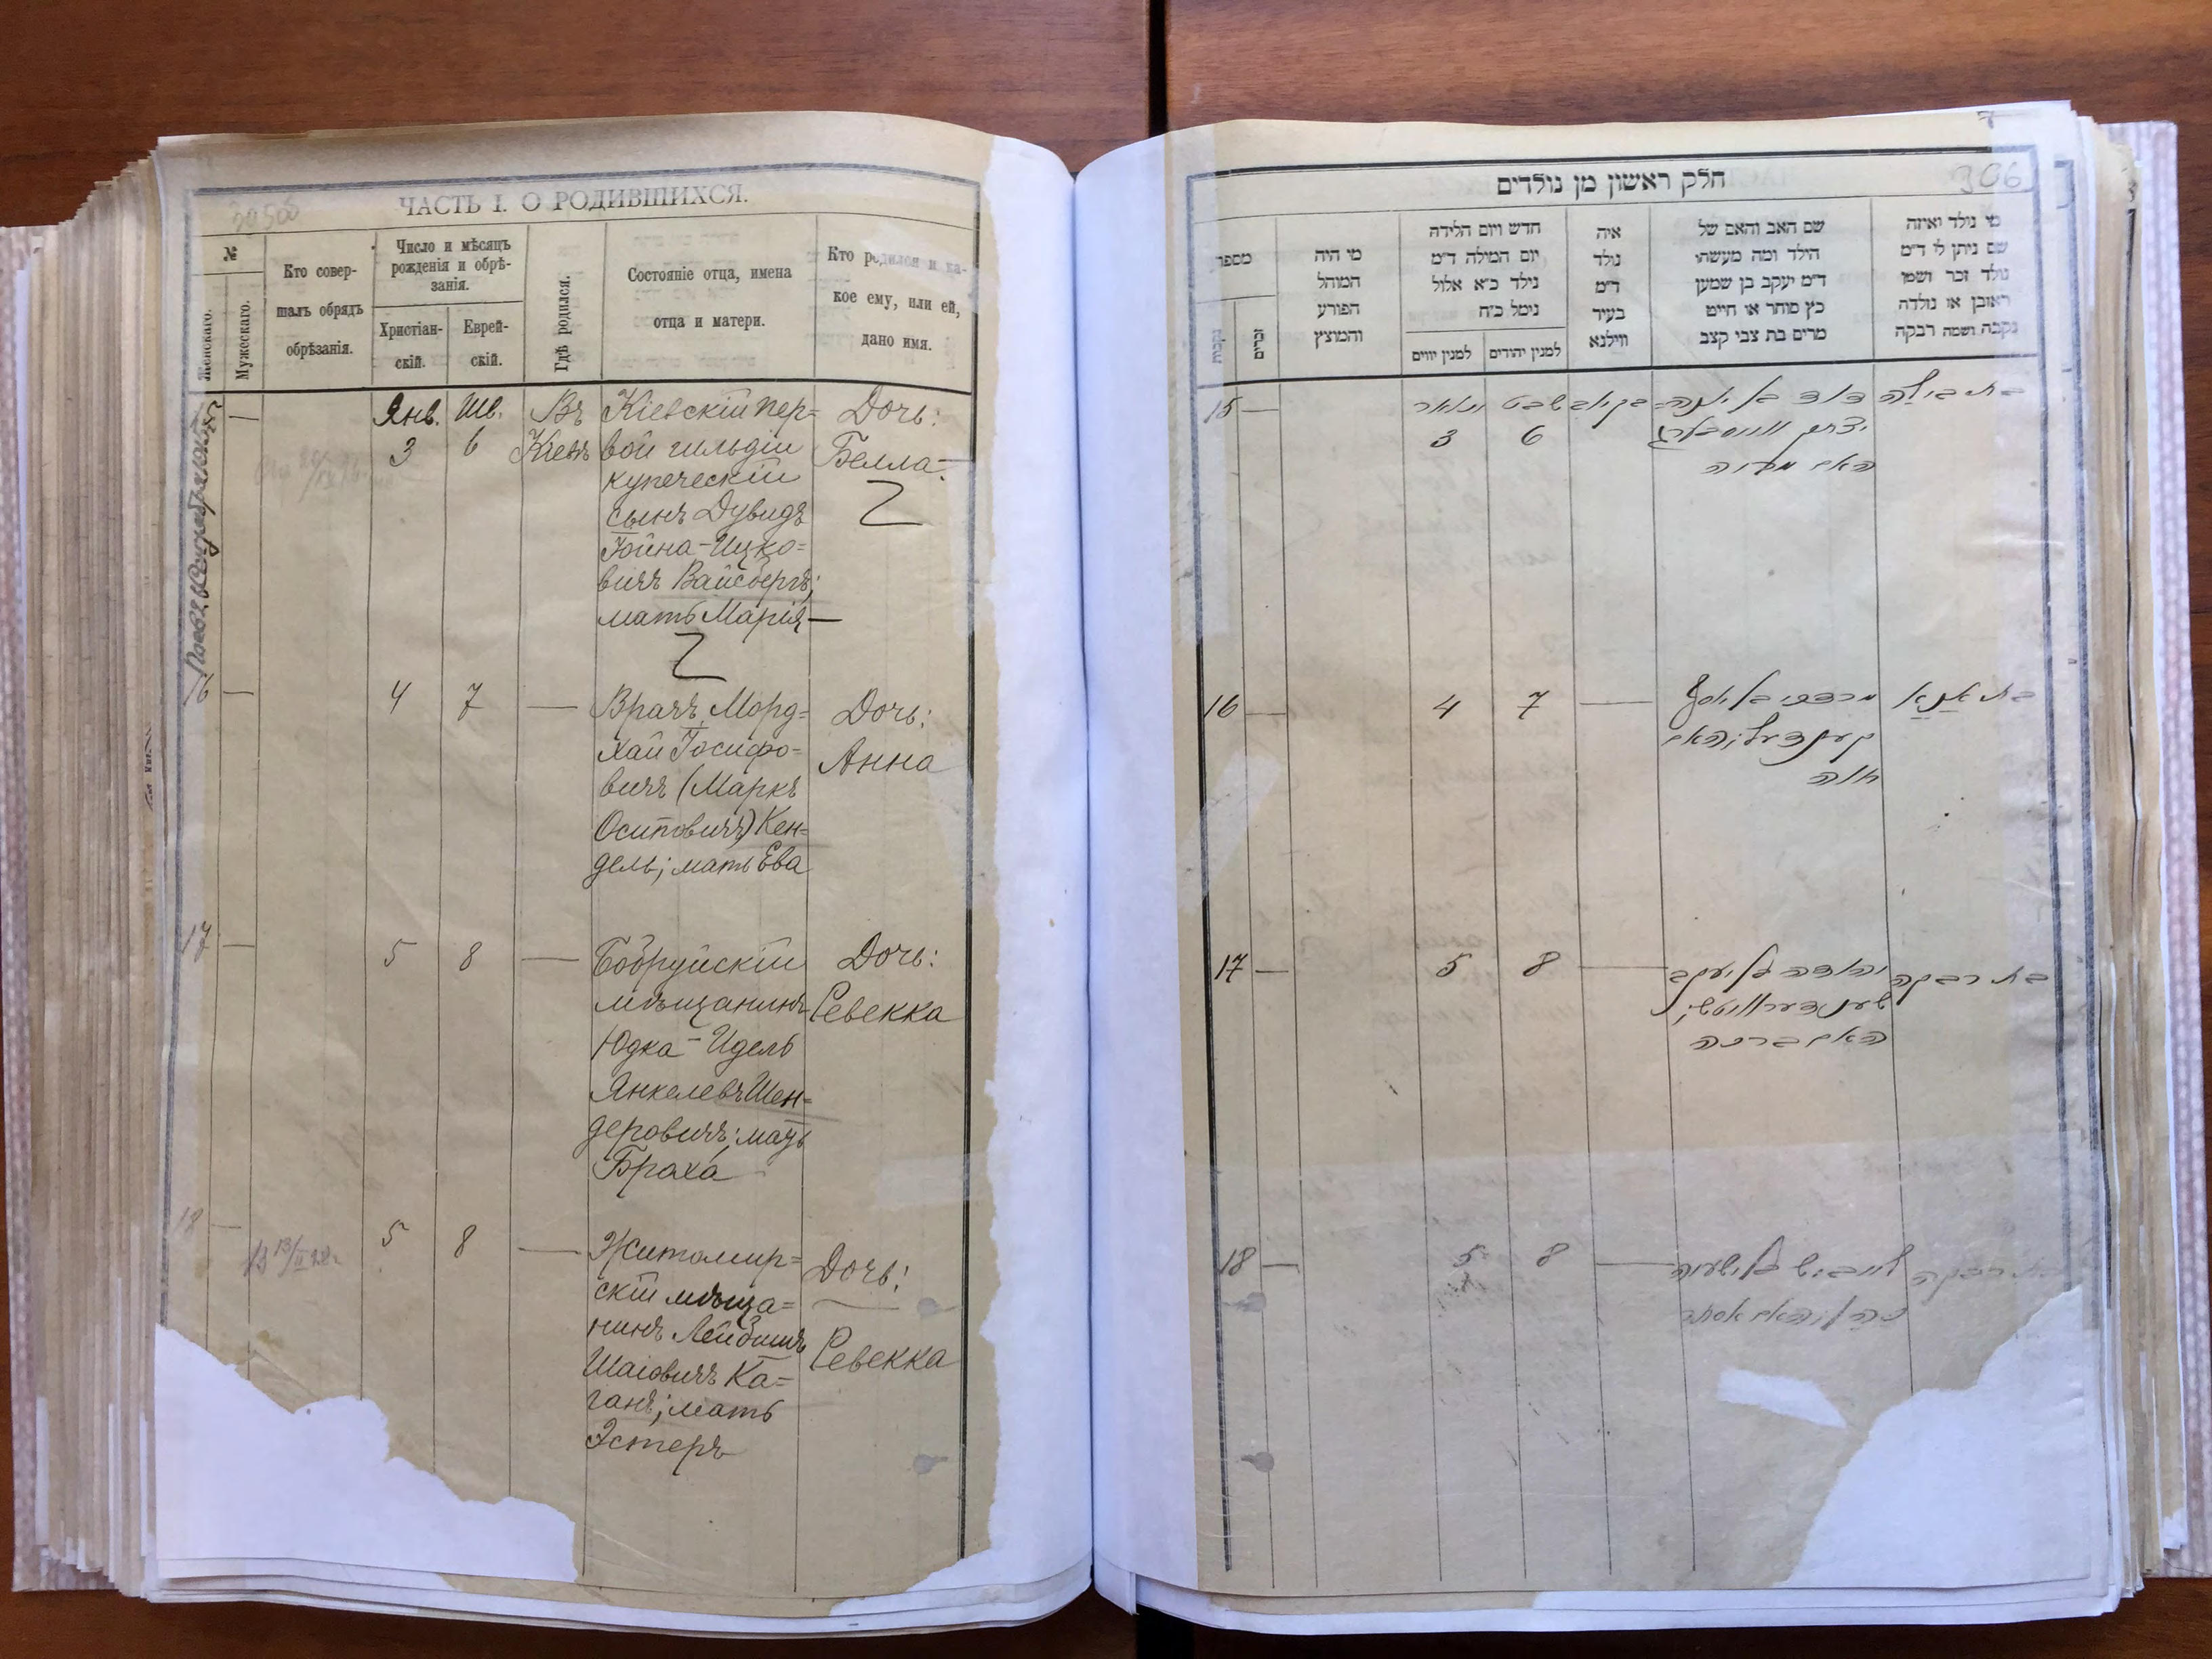 ЧАСТЬ I. О РОДИВШИХСЯ.
№
Женскаго.
Мужескаго.
Кто совер-
шалъ обрядъ
обрѣзанія.
Число и мѣсяцъ
рожденія и обрѣ-
занія.
Христіан-
скій.
Еврей-
скій.
Гдѣ родился.
Состояніе отца, имена
отца и матери.
Кто родился и ка-
кое ему, или ей,
дано имя.
15 —
Янв.
3
Шв.
6
Въ
Кіевѣ
Кіевскій пер=
вой гильдіи
купеческій
сынъ Дувидъ
Іойна-Ицко=
вичъ Вайсбергъ;
мать Марія —
Дочь:
Белла-
16 —
4
7
—
Врачъ Морд=
хай Іосифо=
вичъ (Маркъ
Осиповичъ) Кен=
дель; мать Ева
Дочь:
Анна
17 —
5
8
—
Бобруйскій
мѣщанинъ
Юдка-Идель
Янкелевъ Шен=
деровичъ; мать
Браха
Дочь:
Ревекка
18 —
5
8
—
Житомир=
скій мѣща=
нинъ Лейбишъ
Шаіовичъ Ка=
ганъ; мать
Эстеръ
Дочь:
Ревекка
306
חלק ראשון מן נולדים
מי נולד ואיזה
שם ניתן לו ד״מ
נולד זכר ושמו
ראובן או נולדה
נקבה ושמה רבקה
שם האב והאם של
הילד ומה מעשהו
ד״מ יעקב בן שמען
כץ סוחר או חייט
מרים בת צבי קצב
איה
נולד
ד״מ
בעיר
ווילנא
חדש ויום הלידה
יום המילה ד״מ
נילד כ״א אלול
נימל כ״ח
למנין יהודים
למנין יווים
מי היה
המוהל
הפורע
והמוצץ
מספר
זכרים
נקבות
בת ביילה
דוד בן יונה=
יצחק ווייסבערג
האם מריה
בקיוב
שבט
6
ינואר
3
15 —
בת אננא
מרדכי בן יוסף
קענדעל; והאם
חוה
—
7
4
16 —
בת רבקה
יהודה בן יעקב
שענדעראוויטש;
האם ברכה
—
8
5
17 —
בת רבקה
לייביש בן ישעיה
כהן; והאם אסתר
—
8
5
18 —